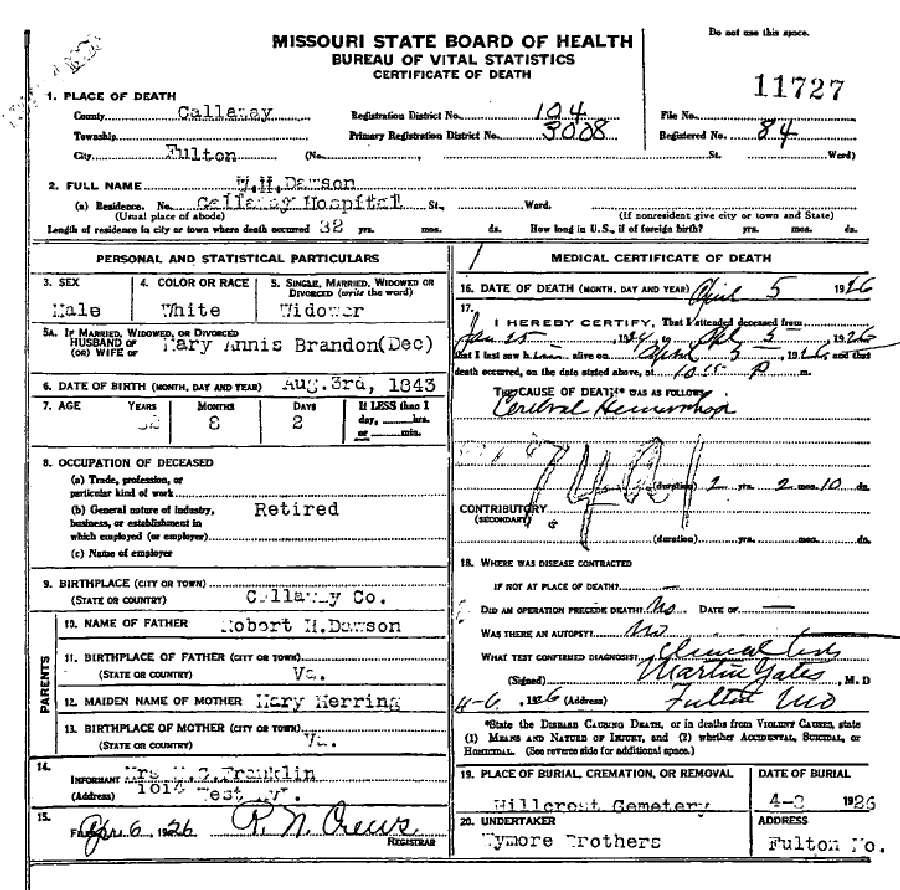 MISSOURI STATE BOARD OF HEALTH
BUREAU OF VITAL STATISTICS
CERTIFICATE OF DEATH
Do not use this space.
11727
1. PLACE OF DEATH
County Callaway Registration District No. 104 File No.
Township Primary Registration District No. 3008 Registered No. 84
City Fulton (No. , St. Ward)
2. FULL NAME H. Dawson
(a) Residence. No. Callaway Hospital St., Ward.
(Usual place of abode) (If nonresident give city or town and State)
Length of residence in city or town where death occurred 32 yrs. mos. ds. How long in U.S., if of foreign birth? yrs. mos. ds.
PERSONAL AND STATISTICAL PARTICULARS
3. SEX 4. COLOR OR RACE 5. SINGLE, MARRIED, WIDOWED OR DIVORCED (write the word)
Male White Widower
5A. IF MARRIED, WIDOWED, OR DIVORCED
HUSBAND OF Mary Annis Brandon(Dec)
(OR) WIFE OF
6. DATE OF BIRTH (MONTH, DAY AND YEAR) Aug. 3rd, 1843
7. AGE YEARS MONTHS DAYS If LESS than 1
8 2 day, hrs.
or min.
8. OCCUPATION OF DECEASED
(a) Trade, profession, or
particular kind of work
(b) General nature of industry, Retired
business, or establishment in
which employed (or employer)
(c) Name of employer
9. BIRTHPLACE (CITY OR TOWN)
(STATE OR COUNTRY) Callaway Co.
PARENTS
10. NAME OF FATHER Robert H.Dawson
11. BIRTHPLACE OF FATHER (CITY OR TOWN)
(STATE OR COUNTRY) Va.
12. MAIDEN NAME OF MOTHER Mary Herring
13. BIRTHPLACE OF MOTHER (CITY OR TOWN)
(STATE OR COUNTRY) Va.
14. INFORMANT Mrs Franklin
(Address) 1014 West Av.
15. Apr 6 1926 R. N. Crews
REGISTRAR
MEDICAL CERTIFICATE OF DEATH
16. DATE OF DEATH (MONTH, DAY AND YEAR) April 5 1926
17.
I HEREBY CERTIFY, That I attended deceased from
Jan 25 , 1926
that I last saw h alive on April 5 , 1926 and that
death occurred, on the date stated above, at 10 55 P m.
THE CAUSE OF DEATH* WAS AS FOLLOWS:
Cerebral Hemorrhage
74a1
(duration) 2 yrs. 2 mos. 10 ds.
CONTRIBUTORY
(SECONDARY)
(duration) yrs. mos. ds.
18. WHERE WAS DISEASE CONTRACTED
IF NOT AT PLACE OF DEATH? —
DID AN OPERATION PRECEDE DEATH? No DATE OF —
WAS THERE AN AUTOPSY? No
WHAT TEST CONFIRMED DIAGNOSIS? Clinical
(Signed) Martin Yates , M. D
4-6 , 1926 (Address) Fulton Mo
*State the DISEASE CAUSING DEATH, or in deaths from VIOLENT CAUSES, state
(1) MEANS AND NATURE OF INJURY, and (2) whether ACCIDENTAL, SUICIDAL, or
HOMICIDAL. (See reverse side for additional space.)
19. PLACE OF BURIAL, CREMATION, OR REMOVAL DATE OF BURIAL
Hillcrest Cemetery 1926
20. UNDERTAKER ADDRESS
Wymore Brothers Fulton Mo.